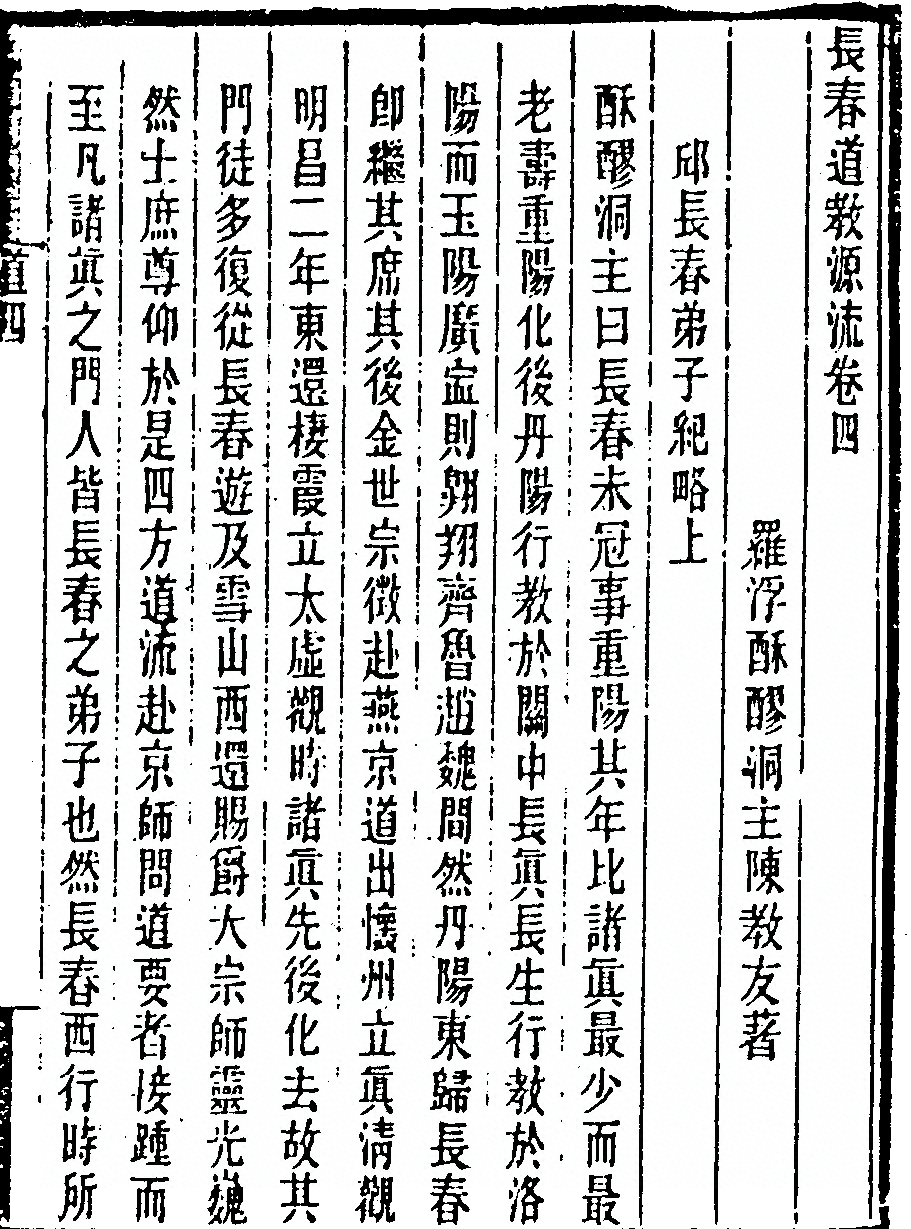 長春道教源流卷四
羅浮酥醪洞主陳教友著
邱長春弟子紀略上
酥醪洞主曰長春未冠事重陽其年比諸眞最少而最
老壽重陽化後丹陽行教於關中長眞長生行教於洛
陽而玉陽廣寍則翱翔齊魯趙魏間然丹陽東歸長春
卽繼其席其後金世宗徵赴燕京道出懷州立眞淸觀
明昌二年東還棲霞立太虛觀時諸眞先後化去故其
門徒多復從長春遊及雪山西還賜爵大宗師靈光巍
然士庶尊仰於是四方道流赴京師問道要者接踵而
至凡諸眞之門人皆長春之弟子也然長春西行時所
道四